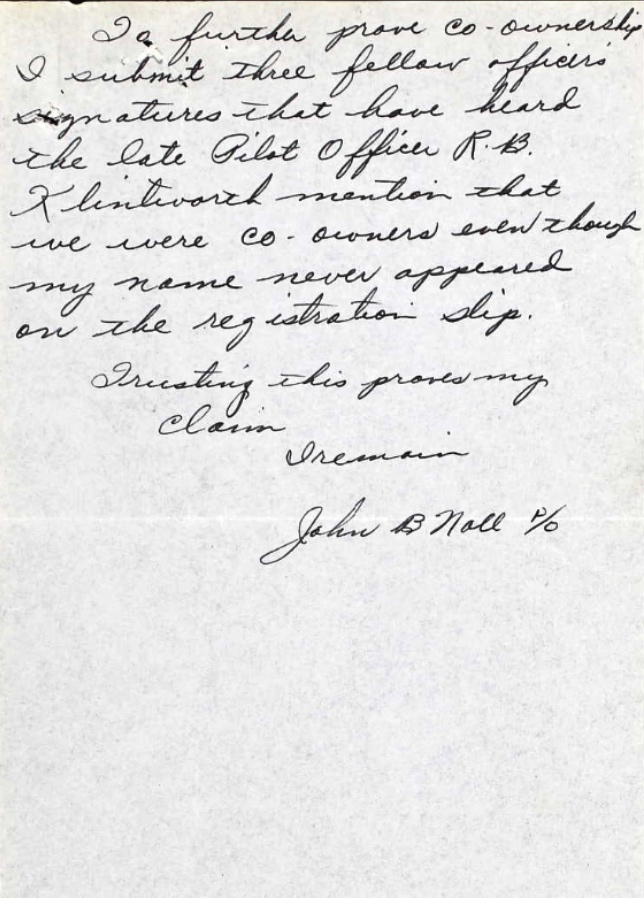 To further prove co-ownership
I submit three fellow officers
signatures that have heard
the late Pilot Officer R.B.
Klintworth mention that
we were co-owners even though
my name never appeared
on the registration slip.
Trusting this proves my
claim
I remain
John B Noll P/O